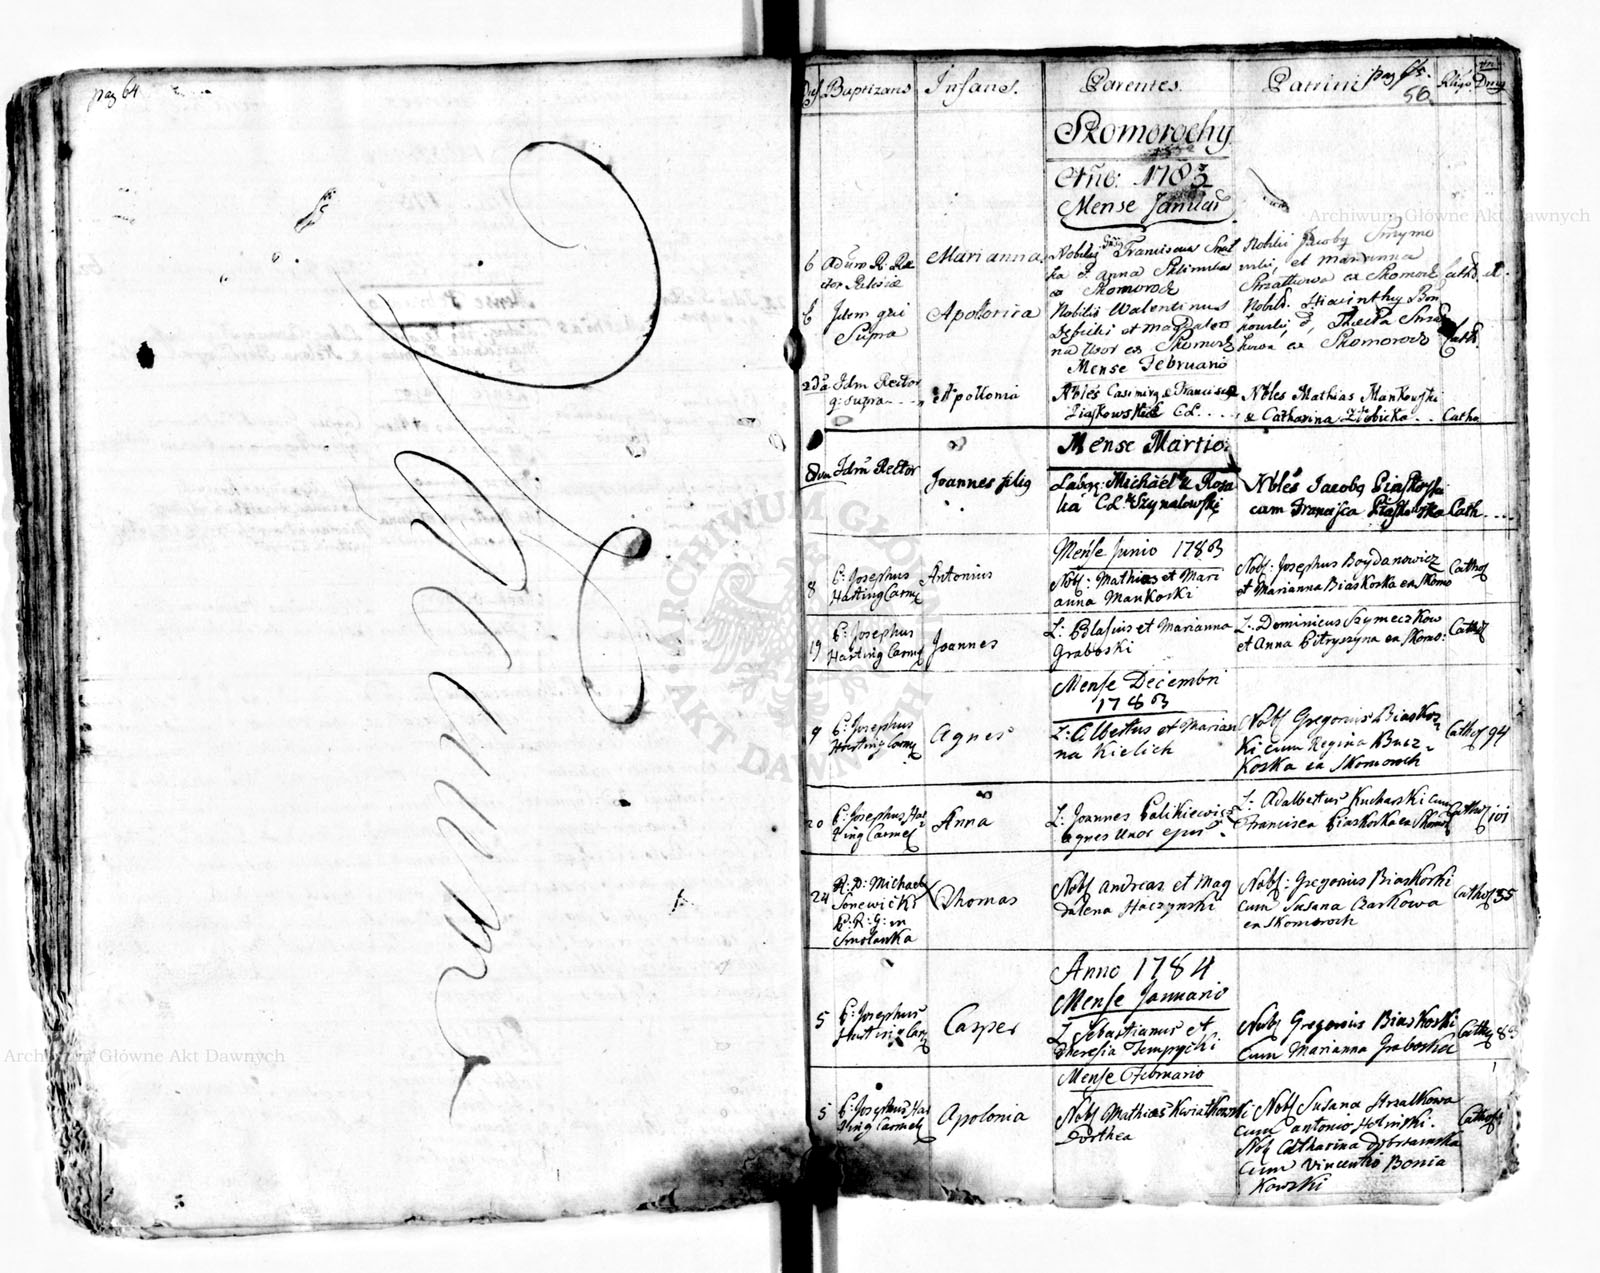 pag 64
Vacuum
Dies Baptizans Infans. Parentes. Patrini pag 65. Religio Dnus
56.
Skomorochy
Año: 1783
Mense Januar
6 Adum R: Rec
tor Eclesiæ
Marianna
Nobiles Franciscus
ka et anna
ex Skomoroch
Nobilis Jacoby Szymo
wski, et Marianna
Strzałkowa ex Skomoroch
Cath.
6 Idem qui
Supra
Apolonia
Nobilis Walentinus
et Magdale
na Uxor ex Skomoroch
Nobilis Hiacinthy Bon
kowski, et, Thecla Strzał
kowa ex Skomoroch
Cath.
Mense Februario
2da Idm Rector
q: supra
Apollonia
Nbles Casimirg & Francisca
Piaskowskie CL.
Nbles Mathias Mankowski
& Catharina Złobicka
Catho
Mense Martio.
8va Idm Rector
Joannes filig
Labor: Michael & Rosa
lia CL. Szynalowski
Nbles Jacobg Piaskowski
cum Francisca Piaskowska
Cath
Mense Junio 1783
8 P: Josephus
Harting Carme
Antonius
Nobl: Mathias et Mari
anna Mankoski
Nobl: Josephus Boydanowicz
et Marianna Biaskoska ex Skomo
Cathol
19 P: Josephus
Harting Carme
Joannes
L: Blasius et Marianna
Graboski
L: Dominicus Szymeczkow
et Anna Pitryszyna ex Skomo:
Cathol
Mense Decembri
1783
9 P: Josephus
Harting Carme
Agnes
L: Albertus et Marian
na Kielich
Nobl Gregorius Biaskos
ki cum Regina Bucz
koska ex Skomoroch
Cathol 94
20 P: Josephus Har
ting Carmel
Anna
L: Joannes Palikiewicz
agnes Uxor ejus
L: Adalbertus Kucharski cum
Francisca Piaskoska ex Skomo
Cathol 101
24 R: D: Michael
Sonewicki
P: R: G: in
Smolanka
Thomas
Nobl Andreas et Mag
dalena Haczynski
Nobl: Gregorius Biaskoski
cum Susana Barkowa
ex Skomoroch
Cathol 35
Anno 1784
Mense Januario
5 P: Josephus
Harting Car
Casper
L Sebastianus et
Theresia Tempycki
Nobl Gregorius Biaskoski
cum Marianna Graboska
Cathol 83
Mense Februario
5 P: Josephus Har
ting Carmel
Apolonia
Nobl Mathias Kwiatkowski
Dorthea
Nobl Susana Strzalkowa
cum antonio Holinski.
Nobl Catharina Dobrzanska
cum Vincentio Bonia
kowski
Cathol
Archiwum Główne Akt Dawnych
Archiwum Główne Akt Dawnych
ARCHIWUM GŁÓWNE AKT DAWNYCH